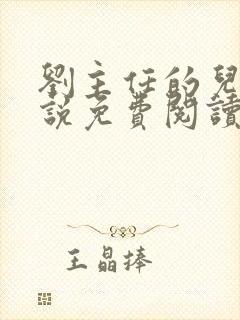 劉主任的兒
說免費閱讀
王晶捧